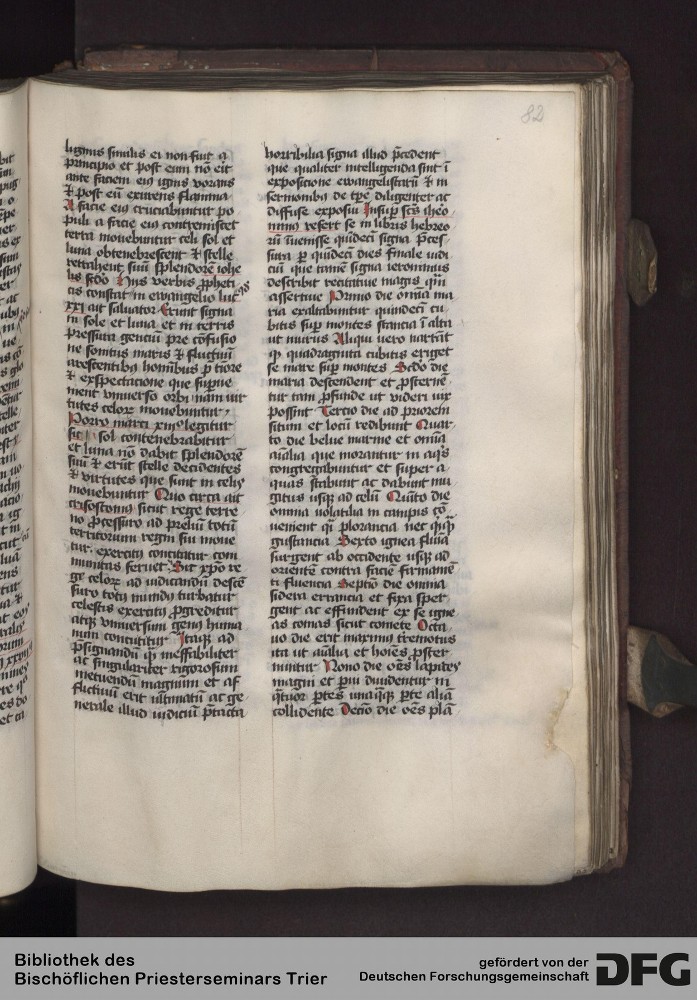 82
lignus similis ei non fuit a
principio et post eum nō erit
ante faciem eiꝰ ignis vorans
⁊ post eū exurens flamma
A facie eiꝰ cruciabuntur po
puli a facie eiꝰ contremiscet
terra mouebuntur celi sol et
luna obtenebrescent ⁊ stelle
retrahent suū splendorē iohe
lis scdo Hijs verbis ꝓpheti
cis constat in ewangelio luc
xxi ait saluator Erunt signa
in sole et luna et in terris
pressura genciū pre cōfusio
ne sonitus maris ⁊ fluctuū
arescentibꝰ hominibꝰ p̱ timore
⁊ expectacione que supueni
ment vniuerso orbi nam vir
tutes celorꝝ mouebuntur
Porro marci xiijo legitur
sic sol contenebrabitur
et luna nō dabit splendorē
suū ⁊ erūt stelle decidentes
⁊ virtutes que sunt in celis
mouebuntur Quo circa ait
crisostomꝰ sicut rege terre
no ꝓcessuro ad preliū totū
territorium regni sui moue
tur exercitꝰ concitatur com
munitas feruet Sic xp̄o re
ge celorꝝ ad iudicandū descē
suro totꝰ mundꝰ turbatur
celestis exercitꝰ ꝓgreditur
atqꝫ vniuersum genꝰ huma
num concutitur Itaqꝫ ad
p̄signandū qꝫ ineffabiliter
ac singulariter rigorosum
metuendū magnum et af
flictiuū erit vltimatū ac ge
nerale illud iudiciū p̄tacta
horribilia signa illud p̄cedent
que qualiter intelligenda sint ī
exposicione ewangelistarū ⁊ in
sermonibꝰ de tꝑe diligenter ac
diffuse exposui Insuꝑ scūs ihero
nimꝰ refert se in libris hebreo
rū inuenisse quīdecī signa p̄ces
sura ꝑ quīdecī dies finale iudi
ciū que tamē signa ieronimus
describit recitatiue magis qm̄
assertiue Primo die om̄ia ma
ria exaltabuntur quindecī cu
bitus suꝑ montes stancia ī alta
ut murus Aliqui vero narrāt
qꝫ quadraginta cubitis eriget
se mare suꝑ montes Scdo die
maria descendent et ꝓsterne
tur tam ꝓfunde ut videri vix
possint Tercio die ad priorem
situm et locū redibunt Quar
to die belue marine et om̄ia
aīalia que morantur in aqs
congregabuntur et super a
quas stabunt ac dabunt mu
gitus usqꝫ ad celū Quīto die
omnia volatilia in campis cō
uenient q̄ plorancia nec q̄cqꝫ
gustancia Sexto ignea flumīa
surgent ab occidente usqꝫ ad
orientē contra faciē firmamē
ti fluencia Septīo die omnia
sidera errancia et fixa sper
gent ac effundent ex se igne
as comas sicut comete Octa
uo die erit maximꝰ terremotus
ita ut aīalia et hoīes ꝓster
nuntur Nono die oēs lapides
magni et ꝑui diuidentur in
q̄tuor ꝑtes unaqꝫqꝫ ꝑte aliā
collidente Decīo die oēs plā
Bibliothek des
Bischöflichen Priesterseminars Trier
gefördert von der
Deutschen Forschungsgemeinschaft
DFG